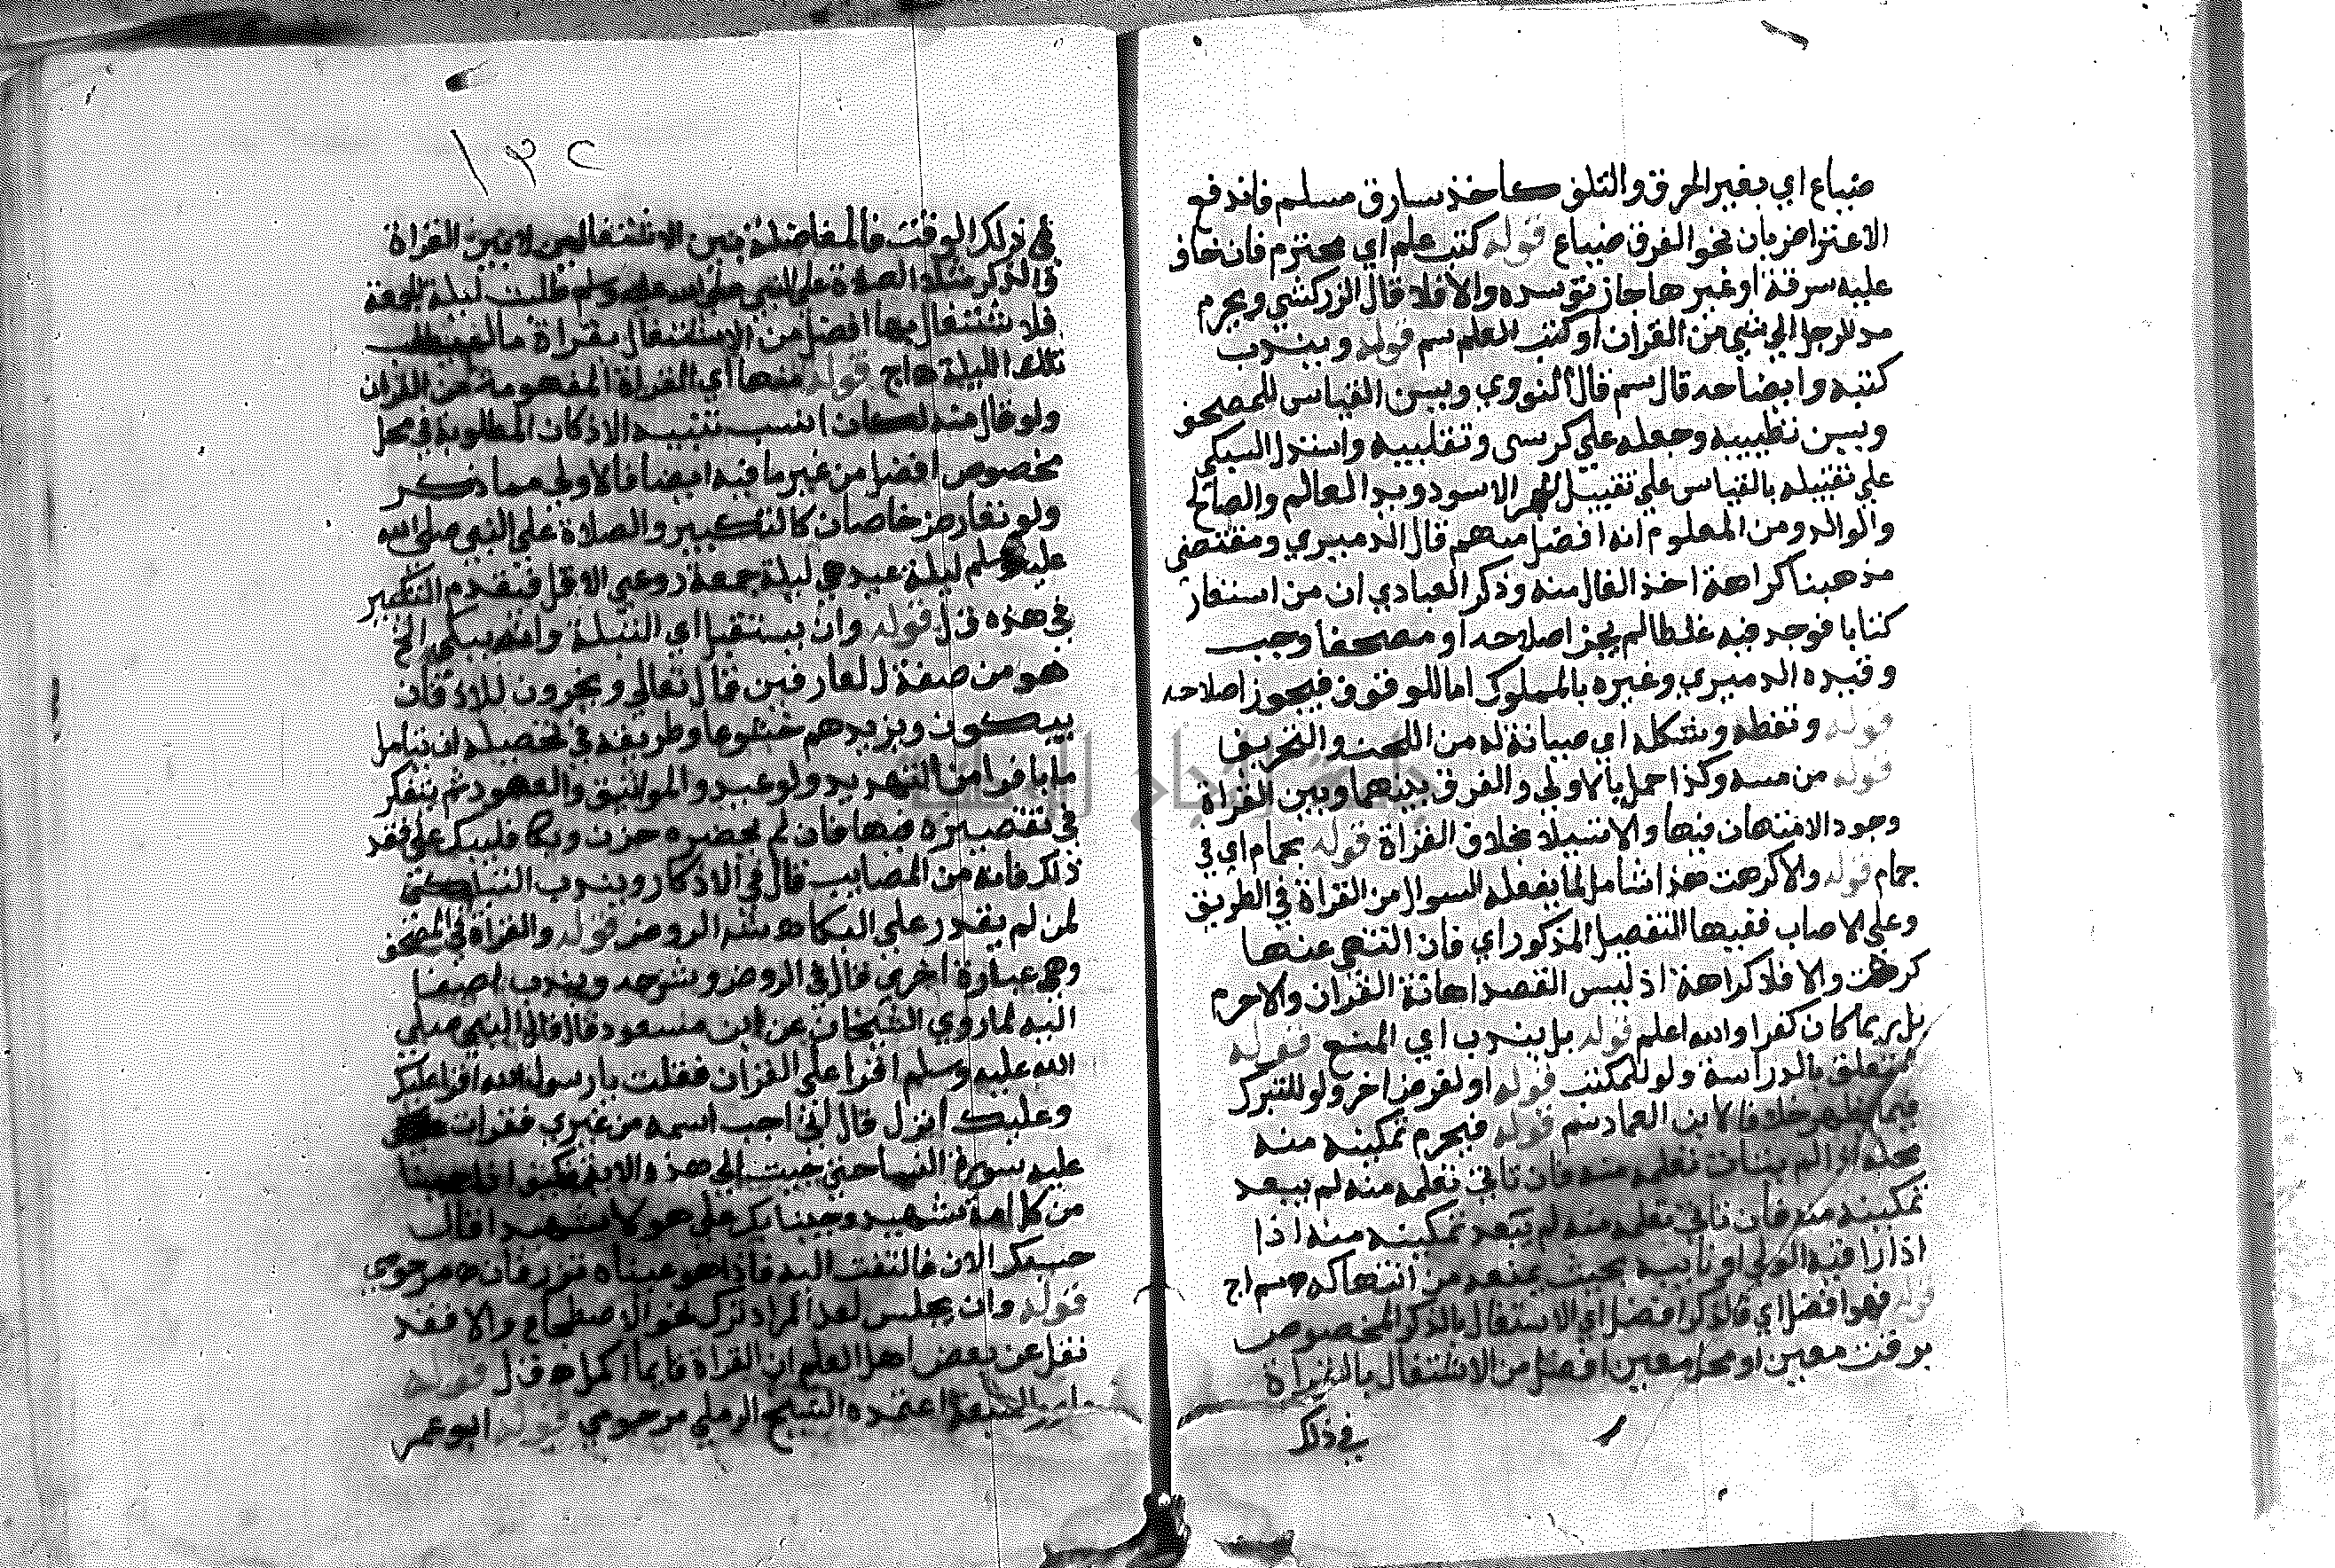 ضياع اي بغير الحرق والتلف كأخذ سارق مسلم فاندفع
الاعتراض بان نحو الغرق ضياع قوله كتب علم اي محترم فان خاف
عليه سرقة او غيرها جاز توسده والا فلا قال الزركشي ويحرم
مد الرجل الي شي من القران او كتب العلم سم قوله ويندب
كتبه وايضاحه قال سم قال النووي ويسن القيام للمصحف
ويسن تطييبه وجعله علي كرسي وتقبيله واستدل السبكي
علي تقبيله بالقياس علي تقبيل الحجر الاسود ويد العالم والصالح
والوالد ومن المعلوم انه افضل منهم قال الدميري ومقتضى
مذهبنا كراهة اخذ الفال منه وذكر العبادي ان من استعار
كتابا فوجد فيه غلطا لم يجز اصلاحه او مصحفا وجب
وقيده الدميري وغيره بالمملوك اما الموقوف فيجوز اصلاحه
قوله ونقطه وشكله اي صيانة له من اللحن والتحريف
قوله من مسه وكذا حمل بالاولى والفرق بينهما وبين القراة
وجود الامتهان فيها والاستيلا بخلاف القراة قوله بحمام اي في
حمام قوله والا كرهت هذا شامل لما يفعله السوال من القراة في الطريق
وعلي الاصاب ففيها التفصيل المذكور اي فان التهى عنها
كرهت والا فلا كراهة اذ ليس القصد اهانة القران والاحرم
بل ربما كان كفرا والله اعلم قوله بل يندب اي المنع قوله
متعلق بالدراسة ولو للمكتب قوله او لغرض اخر ولو للتبرك
فيما يظهر خلافا لابن العماد سم قوله فيحرم تمكينه منه
محله اذا لم يتات تعلمه منه فان تاتي تعلمه منه لم يبعد
تمكينه منه فان تاتي تعلمه منه لم يبعد تمكينه منه اذا
اذا راقبه الولي او نايبه بحيث يمنعه من انتهاكه سم اج
قوله فهو افضل اي فالذكر افضل اي الاشتغال بالذكر المخصوص
بوقت معين او محل معين افضل من الاشتغال بالقراة
في ذلك
١٣٢
في ذلك الوقت فالمفاضلة بين الاشتغالين لا بين القراة
والذكر مثلا الصلاة علي النبي صلي الله عليه وسلم طلبت ليلة الجمعة
فلاشتغال بها افضل من الاشتغال بقراة ما لم يطلب
تلك الليلة اج قوله منها اي القراة المفهومة من القران
ولو قال منه لكان انسب تنبيه الاذكار المطلوبة في محل
مخصوص افضل من غيرها فيه ايضا فالاولي مما ذكر
ولو تعارض خاصان كالتكبير والصلاة علي النبي صلي الله
عليه وسلم ليلة عيد هي ليلة جمعة روعي الاقل فيقدم التكبير
في هذه ق ل قوله وان يستقبل اي القبلة وانه يبكي الخ
هو من صفة العارفين قال تعالي ويخرون للاذقان
يبكون ويزيدهم خشوعا وطريقه في تحصيله ان يتامل
ما يقرا من التهديد والوعيد والمواثيق والعهود ثم يتفكر
في تقصيره فيها فان لم يحضره حزن وبكا فليبك علي فقد
ذلك فانه من المصايب قال في الاذكار ويندب التباكي
لمن لم يقدر علي البكا اه شه الروض قوله والقراة في المصحف
وهي عبارة اخري قال في الروض وشرحه ويندب اصغا
اليه لما روي الشيخان عن ابن مسعود قال قال لي النبي صلي
الله عليه وسلم اقرا علي القران فقلت يا رسول الله اقرا عليك
وعليك انزل قال اني احب اسمعه من غيري فقرات
عليه سورة النسا حتي جيت الي هذه الاية فكيف اذا جينا
من كل امة بشهيد وجينا بك علي هولا شهيدا قال
حسبك الان فالتفت اليه فاذا هو عيناه تذرفان اه مرحومي
قوله وان يجلس لعد المراد ترك نحو الاضطجاع والا فقد
نقل عن بعض اهل العلم ان القراة قايما اكمل اه ق ل قوله
اعتمده الشيخ الرملي مرحومي قوله ابو عمر